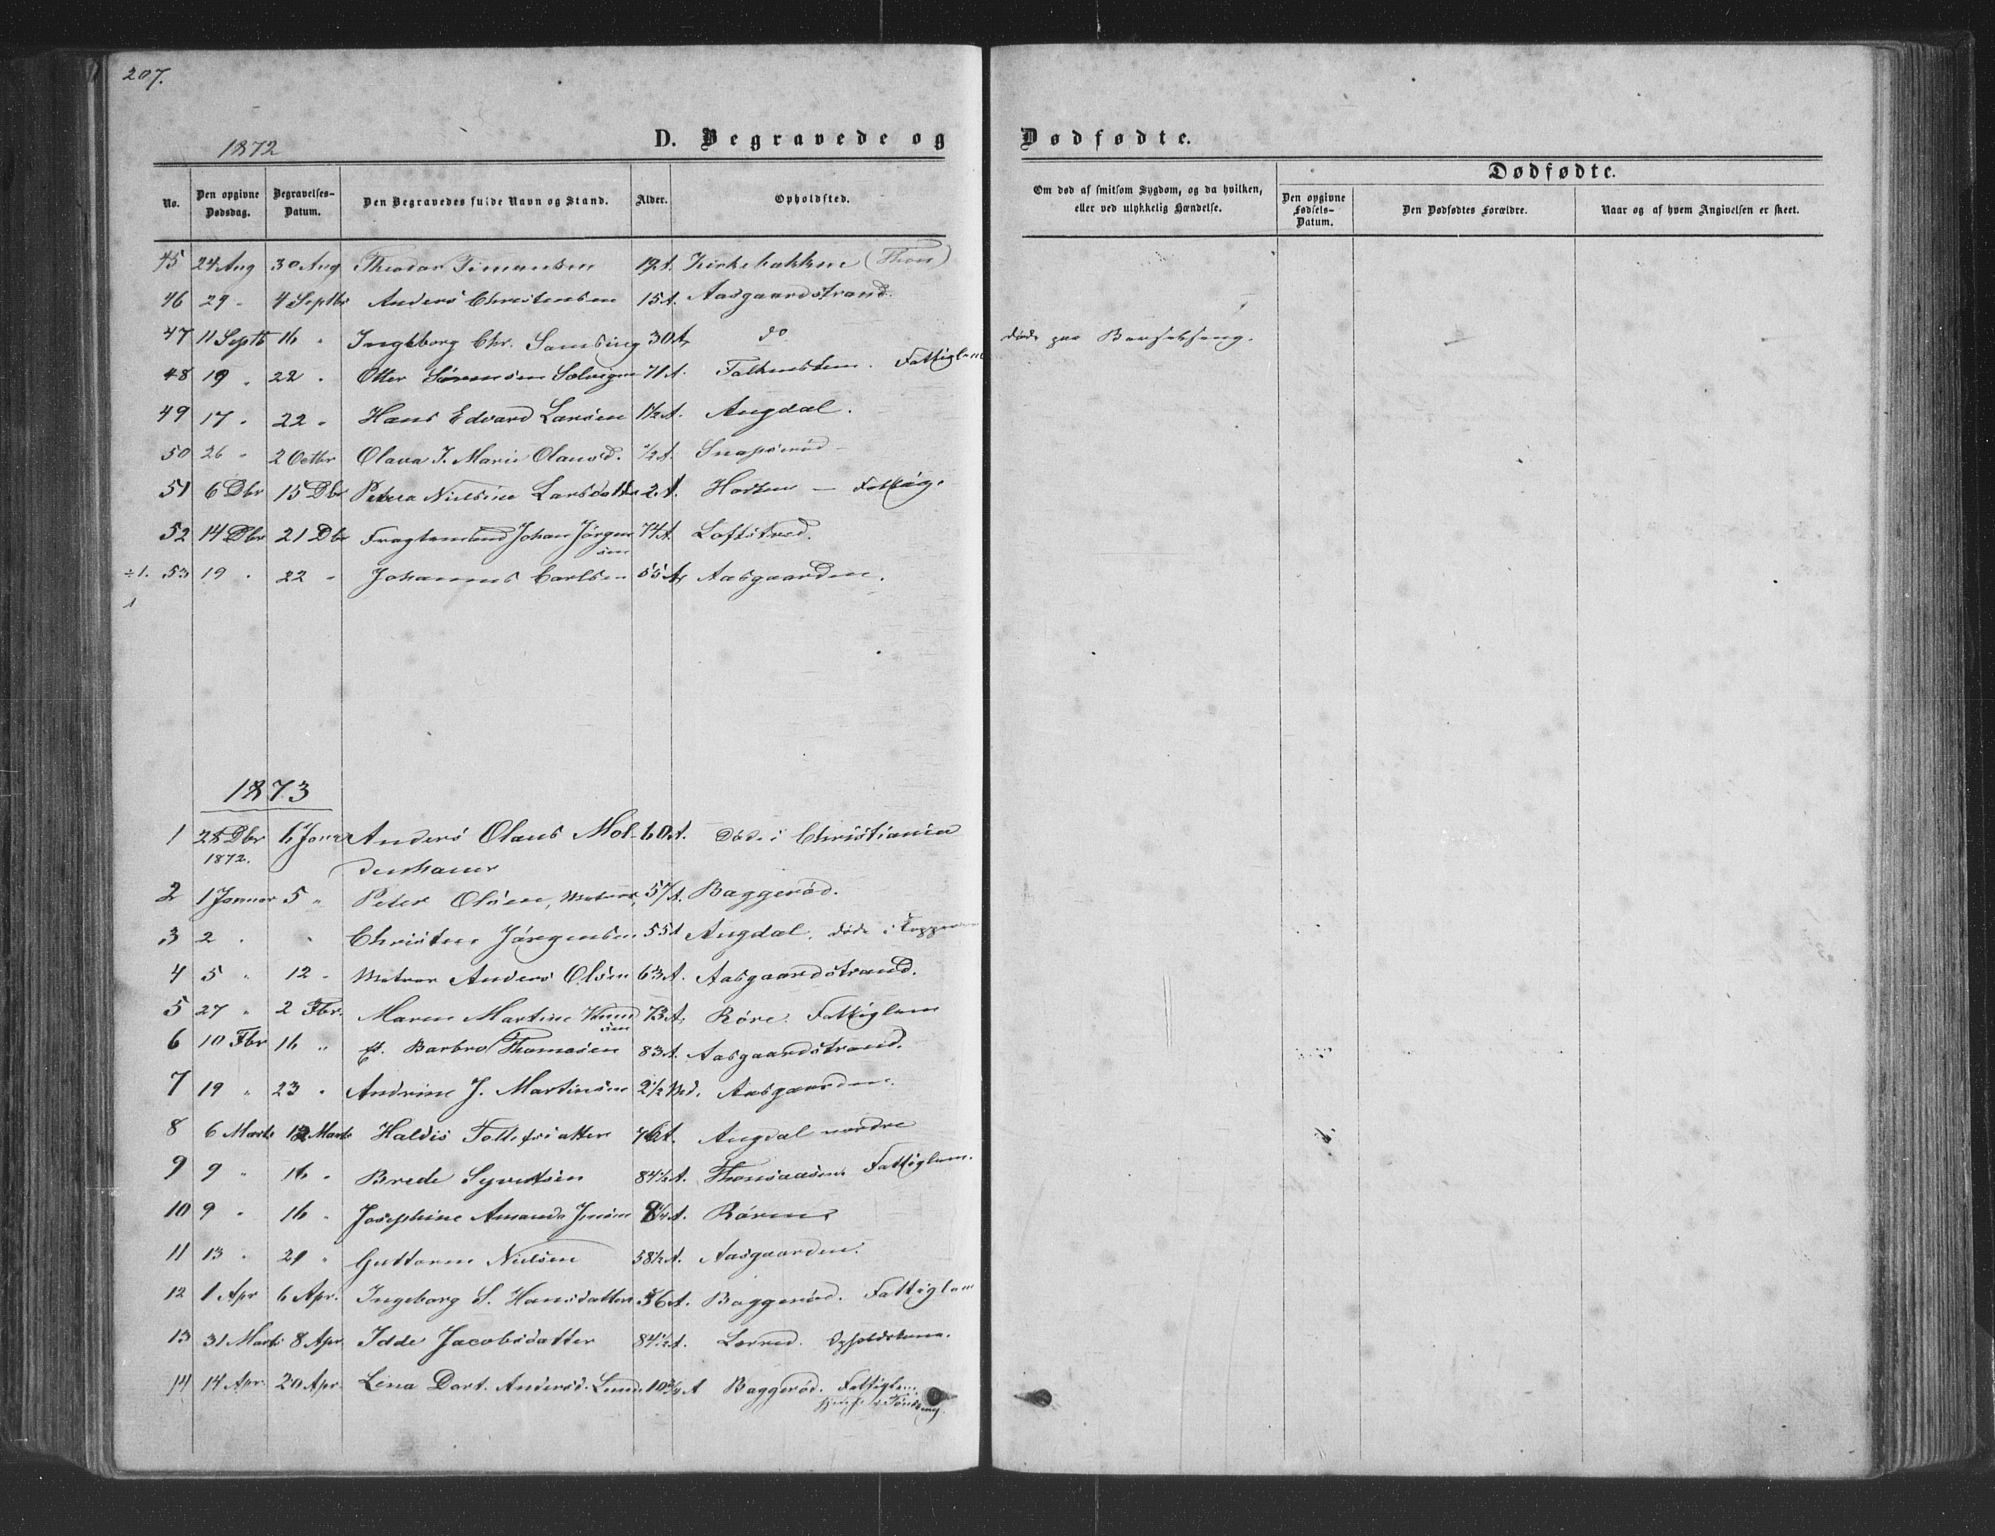 207.
1872
D. Begravede og Dødfødte.
Dødfødte.
No. Den opgivne Dødsdag. Begravelses-Datum. Den Begravedes fulde Navn og Stand. Alder. Opholdssted. Om død af smitsom Sygdom, og da hvilken, eller ved ulykkelig Hændelse. Den opgivne Fødsels-Datum. Den Dødfødtes Forældre. Naar og af hvem Angivelsen er skeet.
45 24 Aug 30 Aug Theodor Simonsen Kirkebakken (Thon)
46 29 " 4 Septbr Anders Christensen 15 A. Aasgaardstrand.
47 11 Septb 16 " Ingeborg Chr. Samsing 30 A. do døde paa Barselseng.
48 19 " 22 " Otter Sørensen 71 A. Falkensten. Fattiglem
49 17 " 22 " Hans Edvard Larsen 1½ A. Augdal.
50 26 " 2 Octbr Olava J. Marie Olausd. ½ A. Snapsrød
51 6 Dbr 15 Dbr Petrea Nielsine Larsdatter 2 A. Horten — Fattig.
52 14 Dbr 21 Dbr Johan Jørgen
sen 74 A. Loftstved.
÷1. 53 19 " 22 " Johannes Carlsen 55 A. Aasgaarden.
1873
1 28 Dbr 6 Januar Anders Olaus Mol- 60 A. Døde i Christiania
1872. denhauer
2 1 Januar 5 " Peter Olsen, Matros, 57 A. Baggerød.
3 2 " " Christen Jørgensen 55 A Augdal, døde i
4 5 " 12 " Matros Anders Olsen 63 A. Aasgaardstrand.
5 27 " 2 Fbr. Maren Martine Knud
sen 73 A. Røre. Fattiglem
6 10 Fbr 16 " E. Barbro Thomasen 83 A. Aasgaardstrand.
7 19 " 23 " Andrine J. Martinsen 2½ Md. Aasgaarden.
8 6 Marts 12 Marts Haldis Tollefsdatter 76 A. Augdal nordre
9 9 " 16 " Brede Syvertsen 84½ A. Thonsaasen. Fattiglem.
10 9 " 16 " Josephine Amanda Jensen Røren
11 13 " 21 " Guttorm Nielsen 58½ A. Aasgaarden.
12 1 Apr 6 Apr. Ingeborg S. Hansdatter 56 A. Baggerød. Fattiglem
13 31 Marts 8 Apr Idde Jacobsdatter 84½ A. Lerved. Opholdskone.
14 14 Apr. 20 Apr. Lena Dort. Andersd. Lund 10¾ A Baggerød. Fattiglem.
Tønsberg.